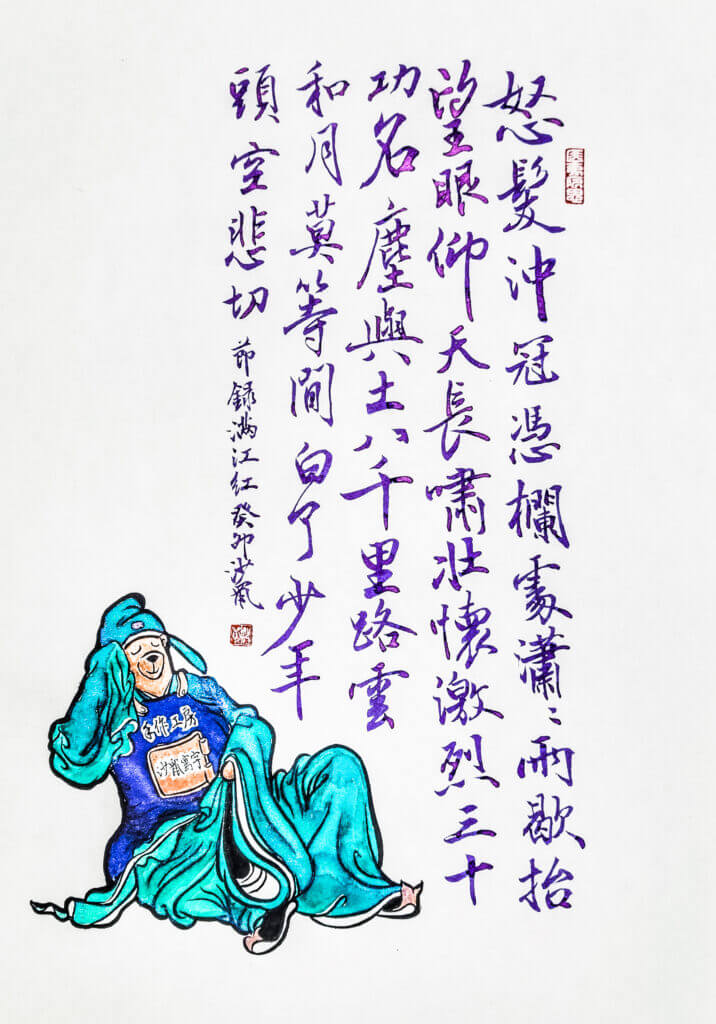 怒髮沖冠憑欄處瀟〻雨歇抬
望眼仰天長嘯壯懷激烈三十
功名塵與土八千里路雲
和月莫等閒白了少年
頭空悲切
節錄滿江紅癸卯沙鼠
手作工房
沙鼠寫字